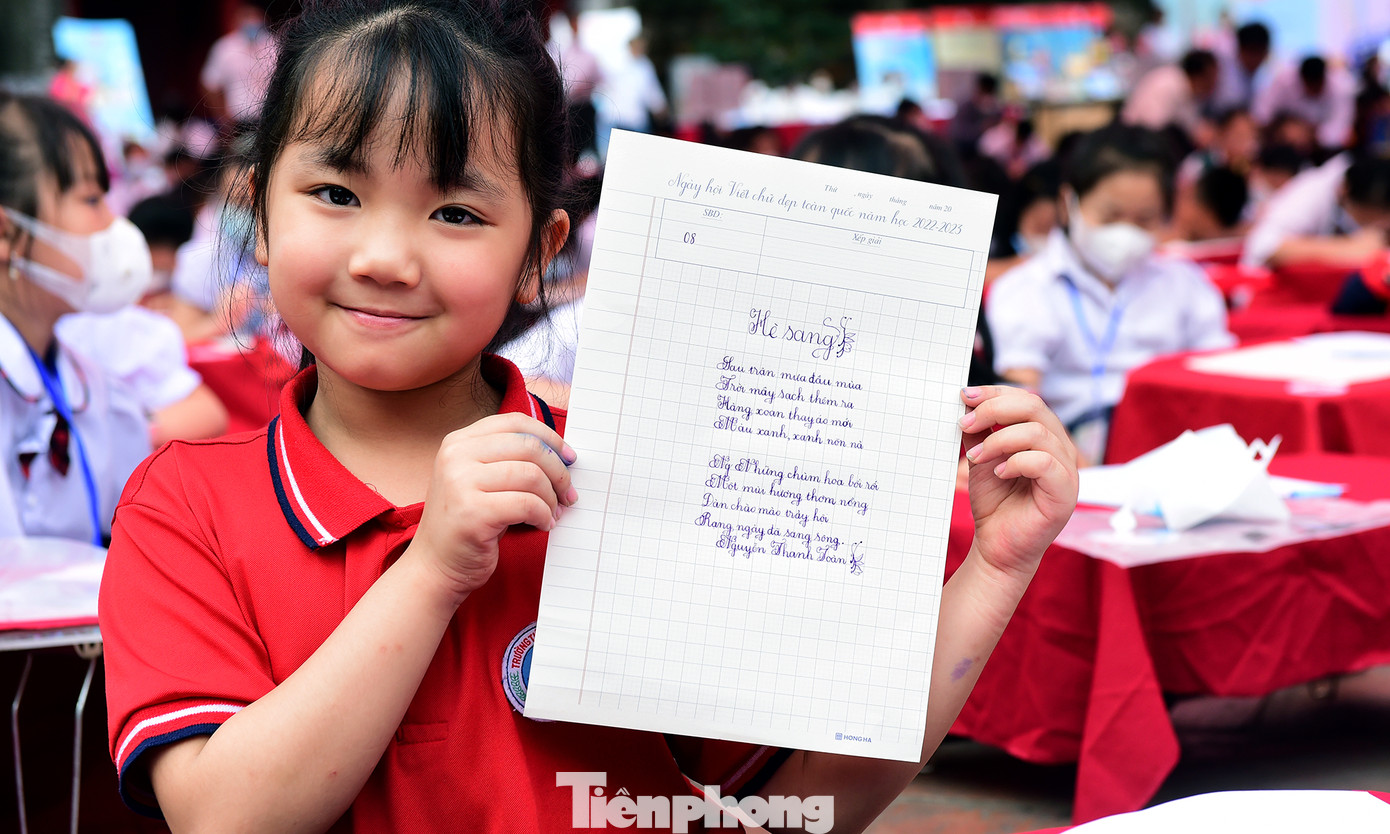 Thứ , ngày tháng năm 20
Ngày hội Viết chữ đẹp toàn quốc năm học 2022-2023
SBD: Xếp giải
08
Hè sang
Sau trận mưa đầu mùa
Trời mây sạch thêm ra
Hàng xoan thay áo mới
Màu xanh, xanh nõn nà
Những chùm hoa bối rối
Một mùi hương thơm nồng
Đàn chào mào trảy hội
Rang ngày đã sang sông.
Nguyễn Thanh Toàn
HONG HA
TRƯỜNG
Tiênphong